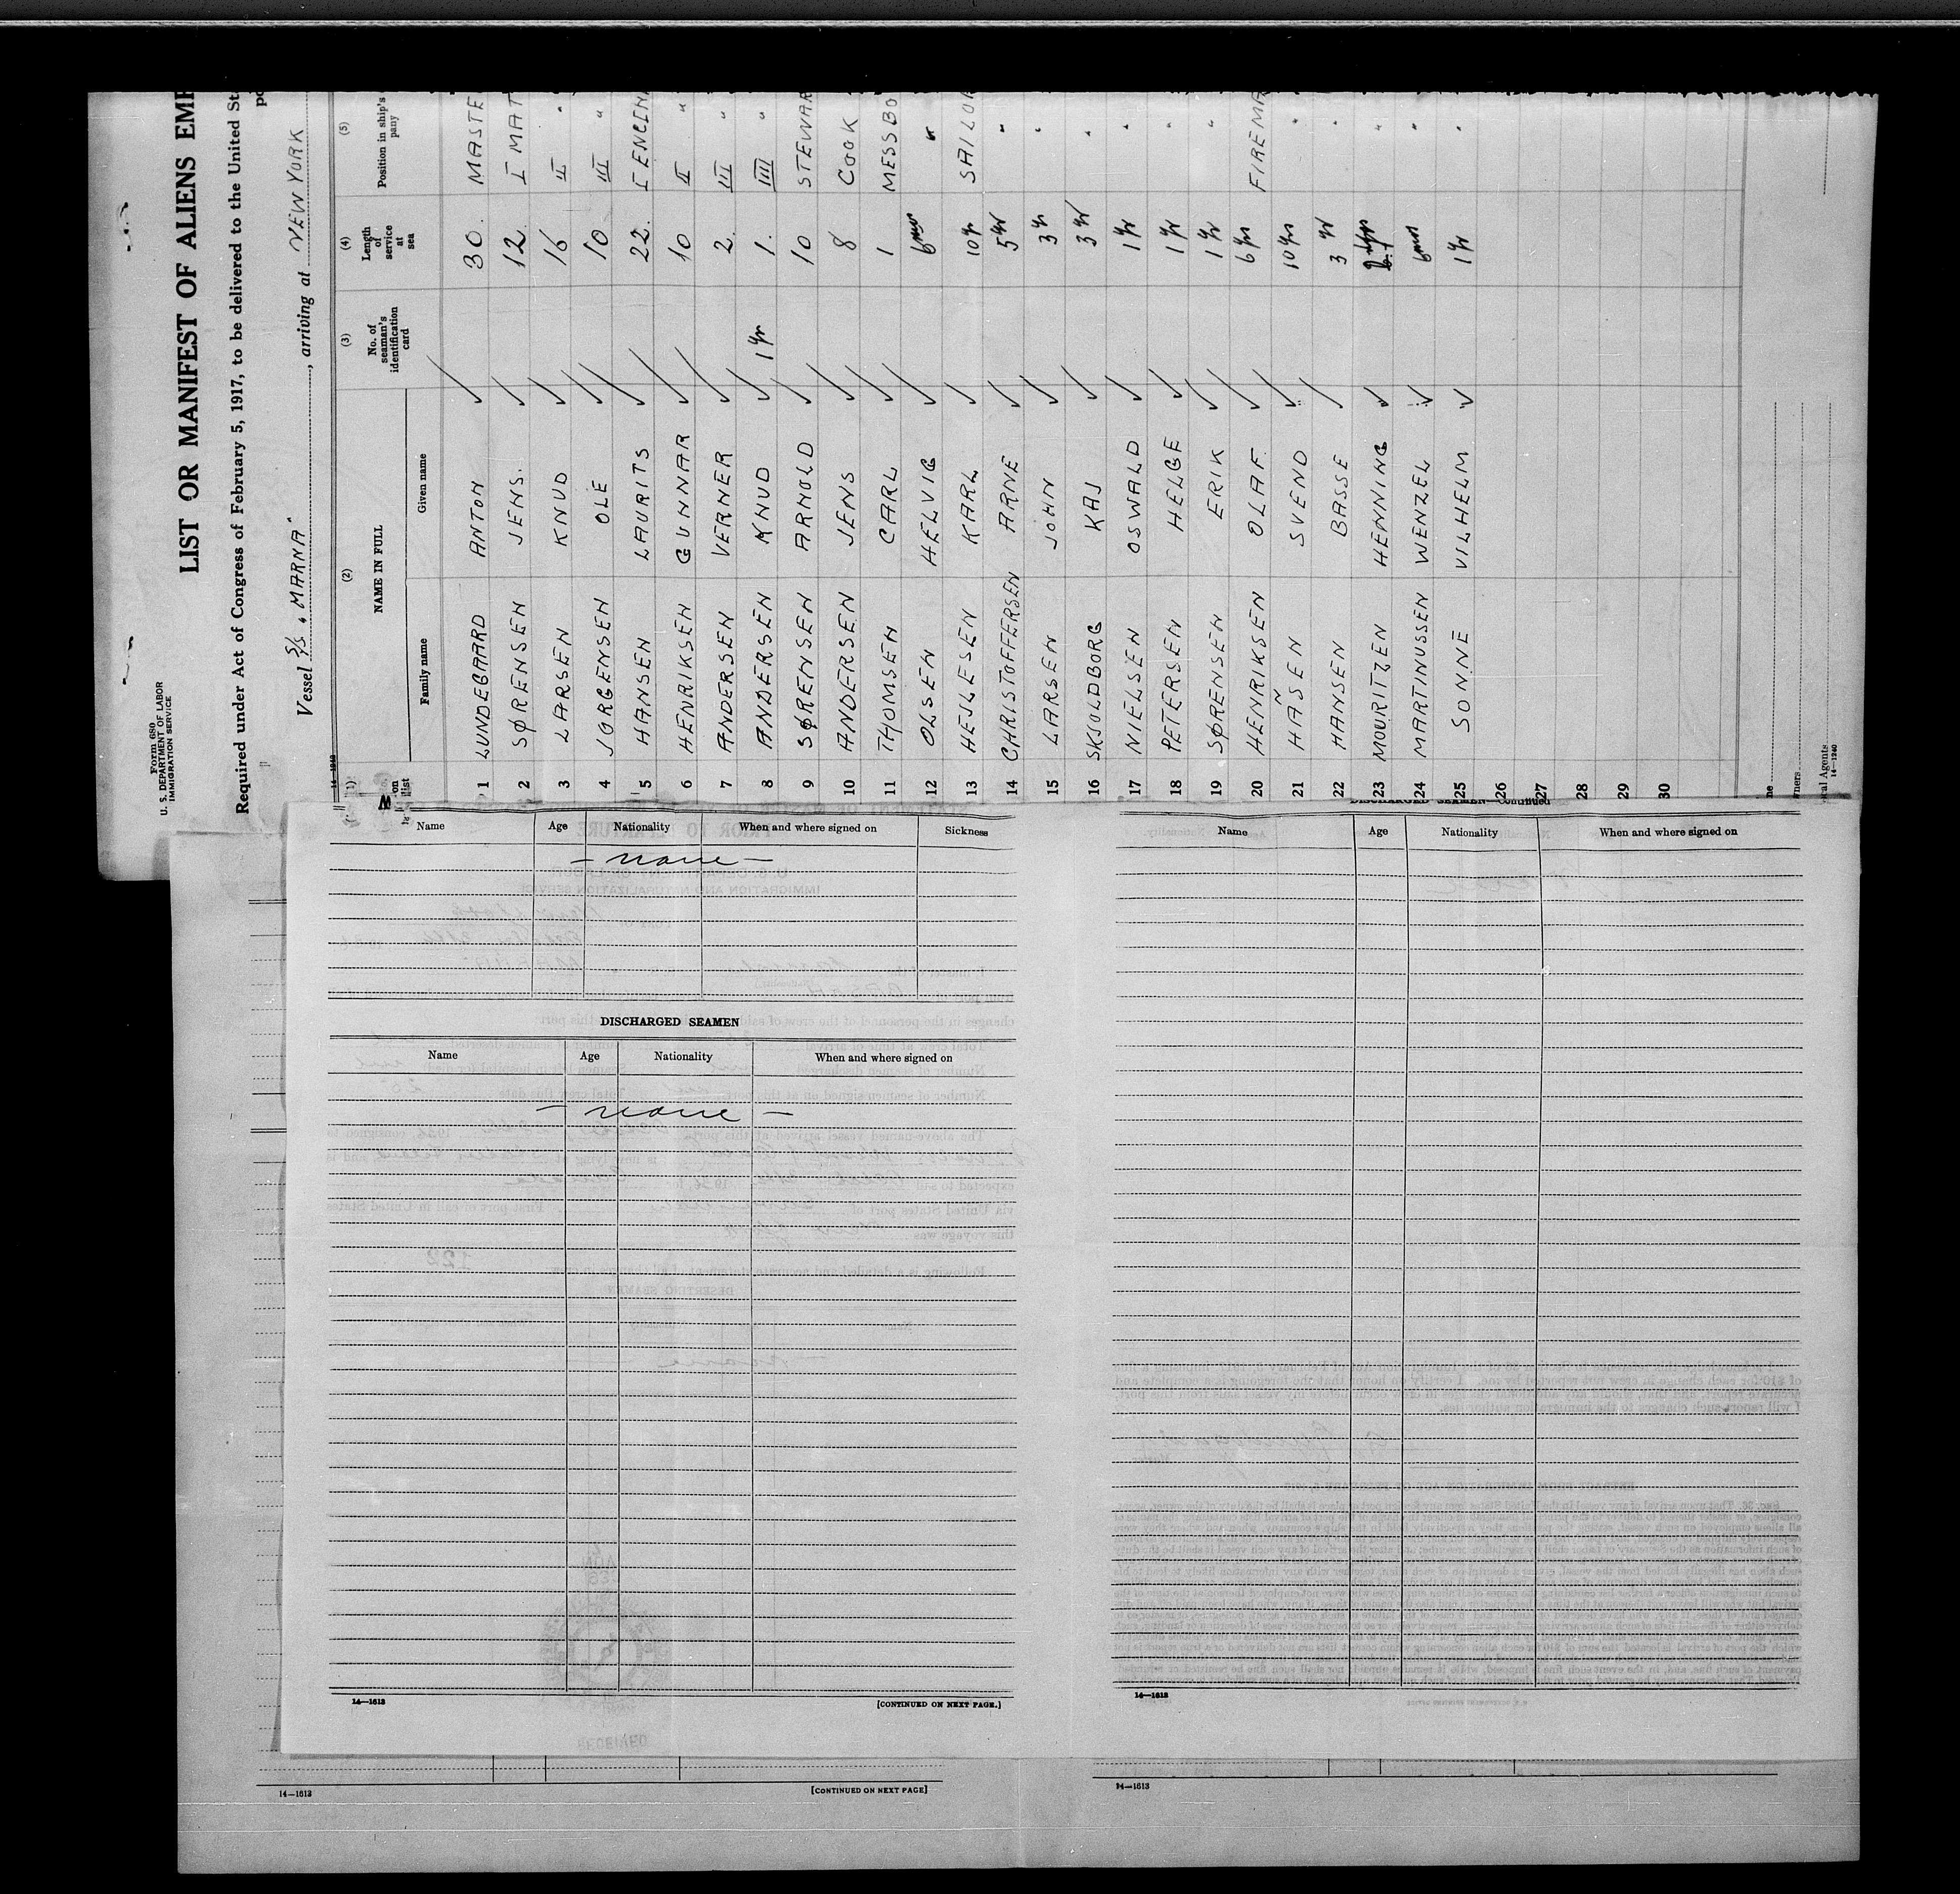 Form 680
U. S. DEPARTMENT OF LABOR
IMMIGRATION SERVICE
LIST OR MANIFEST OF ALIENS EMP
Required under Act of Congress of February 5, 1917, to be delivered to the United Sta
Vessel S/S „MARNA", arriving at NEW YORK
(2) (3) (4) (5)
NAME IN FULL
Family name Given name
No. of seaman's identification card
Length of service at sea
Position in ship's
pany
1 LUNDEGAARD ANTON 30. MASTE
2 SØRENSEN JENS. 12. I MAT
3 LARSEN KNUD 16 II "
4 JØRGENSEN OLE 10 III "
5 HANSEN LAURITS 22. I ENGIN
6 HENRIKSEN GUNNAR 10 II "
7 ANDERSEN VERNER 2. III "
8 ANDERSEN KNUD 1 Yr 1. IIII "
9 SØRENSEN ARNOLD 10 STEWAR
10 ANDERSEN JENS 8 COOK
11 THOMSEN CARL 1 MESSBO
12 OLSEN HELVIG 6 mos "
13 HEJLESEN KARL 10 yr SAILOR
14 CHRISTOFFERSEN ARNE 5 yr "
15 LARSEN JOHN 3 yr "
16 SKJOLDBORG KAJ 3 yr "
17 NIELSEN OSWALD 1 yr "
18 PETERSEN HELGE 1 yr "
19 SØRENSEN ERIK 1 yr "
20 HENRIKSEN OLAF. 6 yrs FIREMA
21 HAÑSEN SVEND 10 yrs "
22 HANSEN BASSE 3 yr "
23 MOURITZEN HENNING "
24 MARTINUSSEN WENZEL 6 mos "
25 SONNE VILHELM 1 yr "
26
27
28
29
30
14-1240
Name Age Nationality When and where signed on Sickness
- none -
DISCHARGED SEAMEN
Name Age Nationality When and where signed on
- none -
14—1613 [CONTINUED ON NEXT PAGE.]
DISCHARGED SEAMEN—Continued
Name Age Nationality When and where signed on
14—1613
14—1613 [CONTINUED ON NEXT PAGE]
14—1613